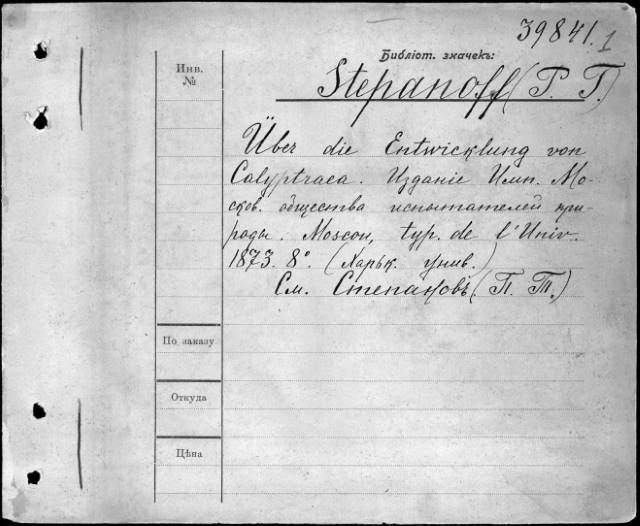 39841.1
Библіот. значекъ:
Инв.
№
Stepanoff (P. T.)
Über die Entwicklung von
Calyptraea. Изданіе Имп. Мо-
сков. общества испытателей при-
роды. Moscou, typ. de l'Univ.
1873. 8°. (Харьк. унив.)
См. Степановъ (П. Т.)
По заказу
Откуда
Цѣна